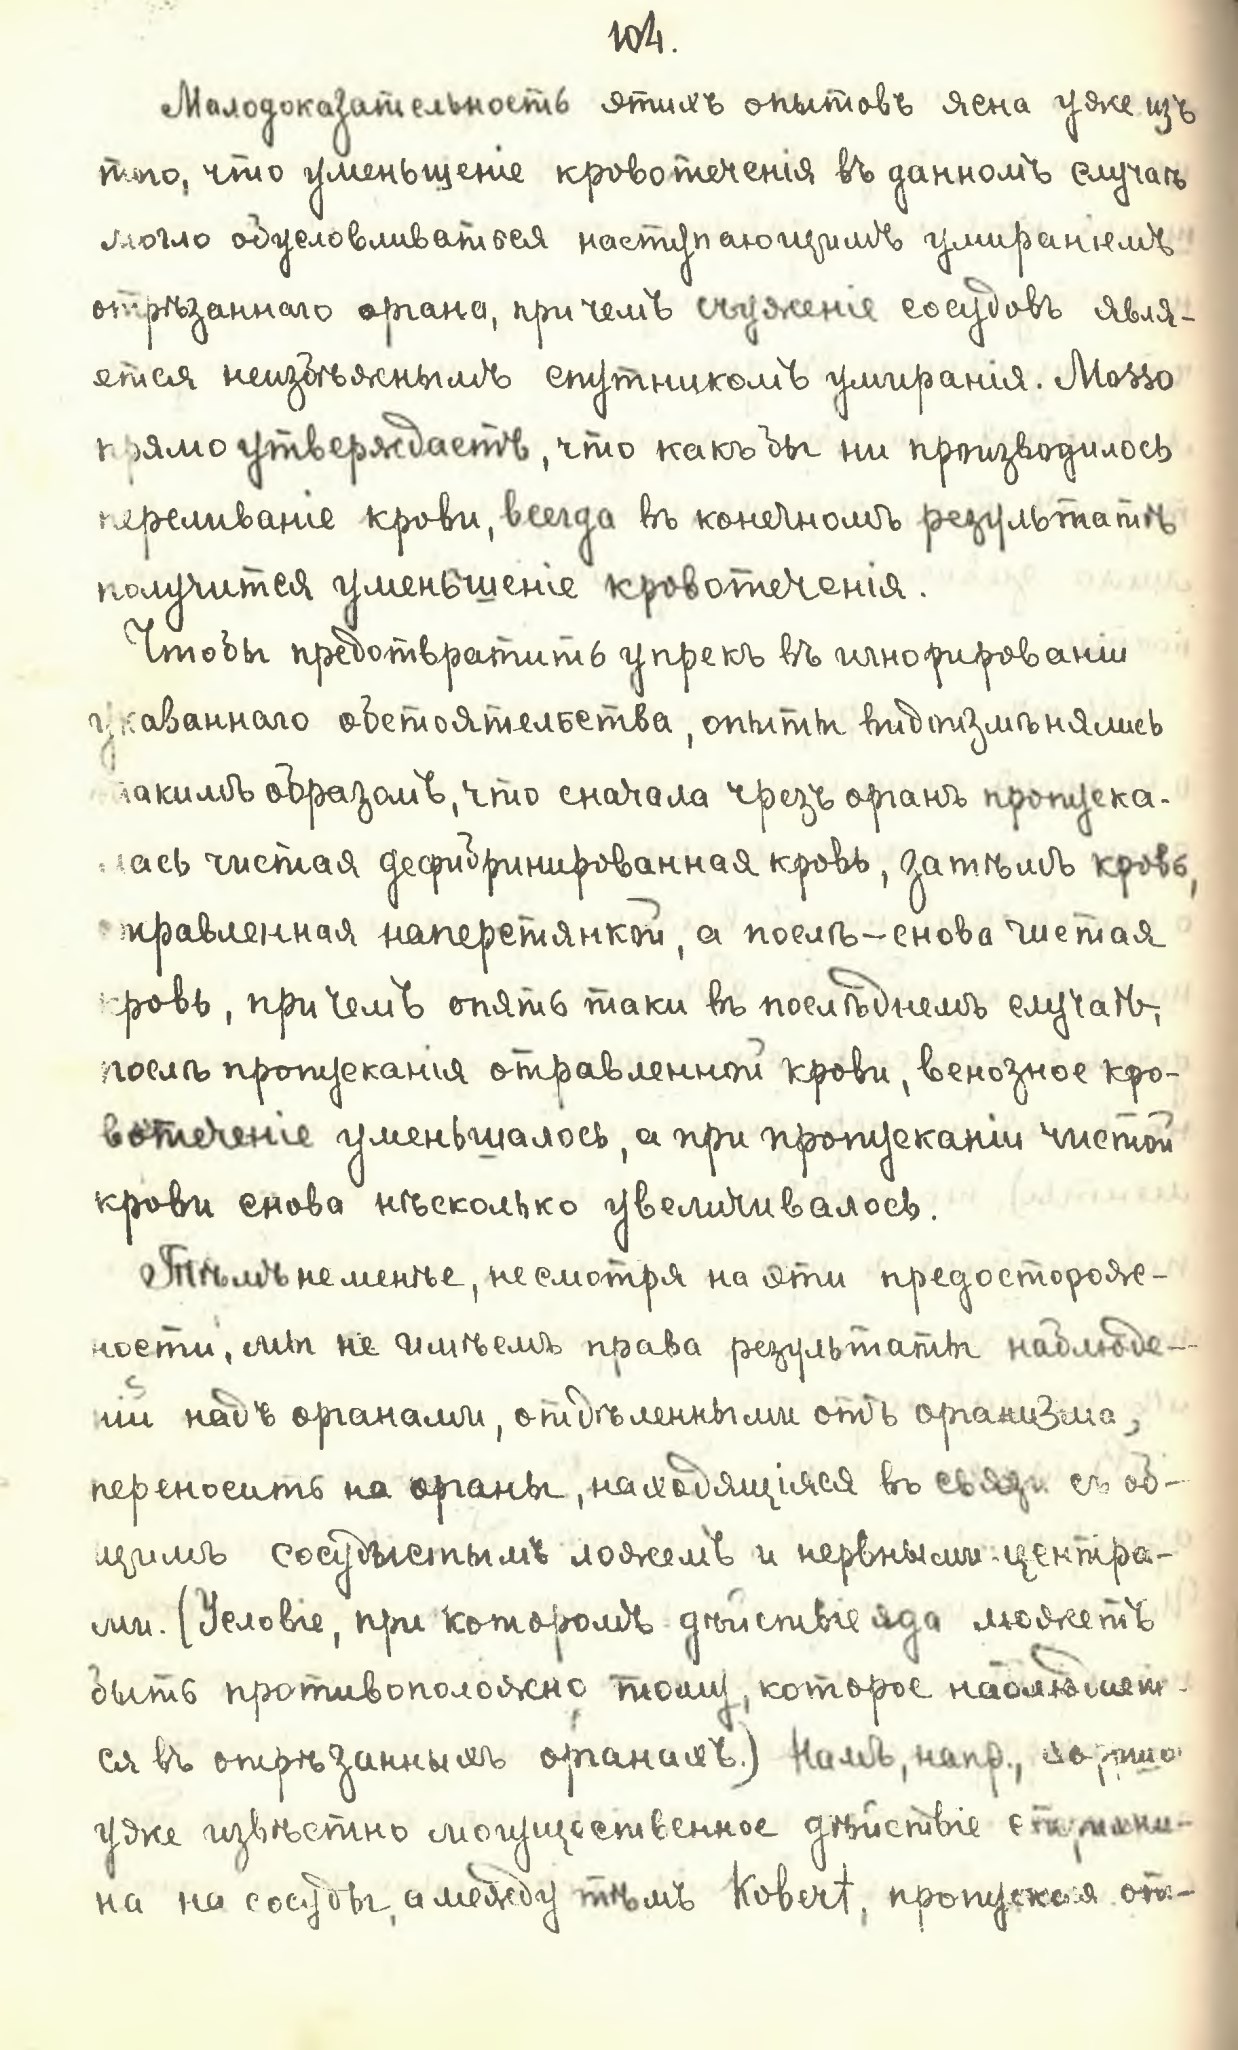 104.
Малодоказательность этихъ опытовъ ясна уже изъ
того, что уменьшеніе кровотеченія въ данномъ случаѣ
могло обусловливаться наступающимъ умираніемъ
отрѣзаннаго органа, при чемъ съуженіе сосудовъ явля-
ется неизбѣжнымъ спутникомъ умиранія. Mosso
прямо утверждаетъ, что какъ бы ни производилось
переливаніе крови, всегда въ конечномъ результатѣ
получится уменьшеніе кровотеченія.
Чтобы предотвратить упрекъ въ игнорированіи
указаннаго обстоятельства, опыты видоизмѣнялись
такимъ образомъ, что сначала чрезъ органъ пропуска-
лась чистая дефибринированная кровь, затѣмъ кровь,
отравленная наперстянкой, а послѣ-снова чистая
кровь, при чемъ опять таки въ послѣднемъ случаѣ,
послѣ пропусканія отравленной крови, венозное кро-
вотеченіе уменьшалось, а при пропусканіи чистой
крови снова нѣсколько увеличивалось.
Тѣмъ не менѣе, не смотря на эти предосторож-
ности, мы не имѣемъ права результаты наблюде-
ній надъ органами, отдѣленными отъ организма,
переносить на органы, находящіяся въ связи съ об-
щимъ сосудистымъ ложемъ и нервными центра-
ми. (Условіе, при которомъ дѣйствіе яда можетъ
быть противоположно тому, которое наблюдает-
ся въ отрѣзанныхъ органахъ.) Намъ, напр., хорошо
уже извѣстно могущественное дѣйствіе стрихни-
на на сосуды, а между тѣмъ Kobert, пропуская от-